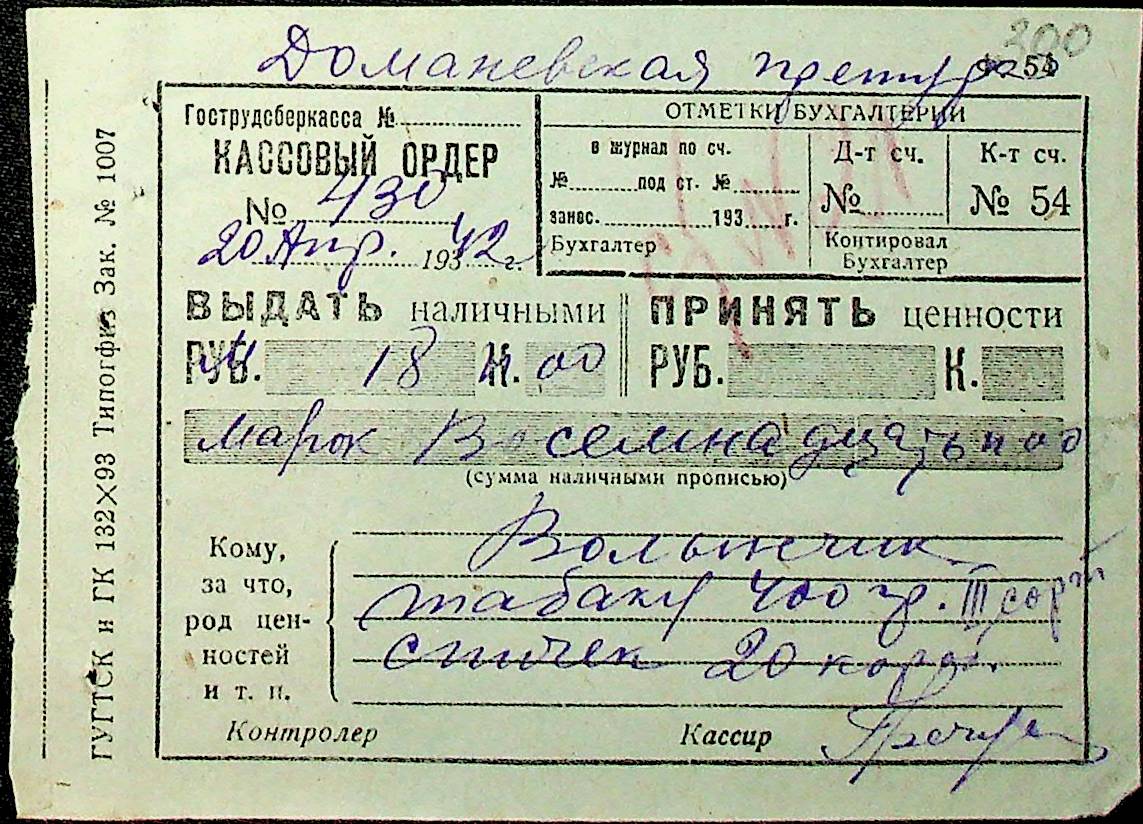 300
Доманевская претура
Ф. 54
Гострудсберкасса №
КАССОВЫЙ ОРДЕР
№ 430
20 Апр. 193 42 г.
ОТМЕТКИ БУХГАЛТЕРИИ
в журнал по сч.
№ под ст. №
занес. 193 г.
Бухгалтер
Д-т сч.
№
К-т сч.
№ 54
Контировал
Бухгалтер
ВЫДАТЬ наличными
РУБ. 18 К. 00
ПРИНЯТЬ ценности
РУБ. К.
Марок Восемнадцать п 00
(сумма наличными прописью)
Кому,
за что,
род цен-
ностей
и т. п.
Волынчик
табаку 400 гр. III сорт
спичек 20 короб.
Контролер
Кассир
ГУГТСК и ГК 132×93 Типогфиз Зак. № 1007